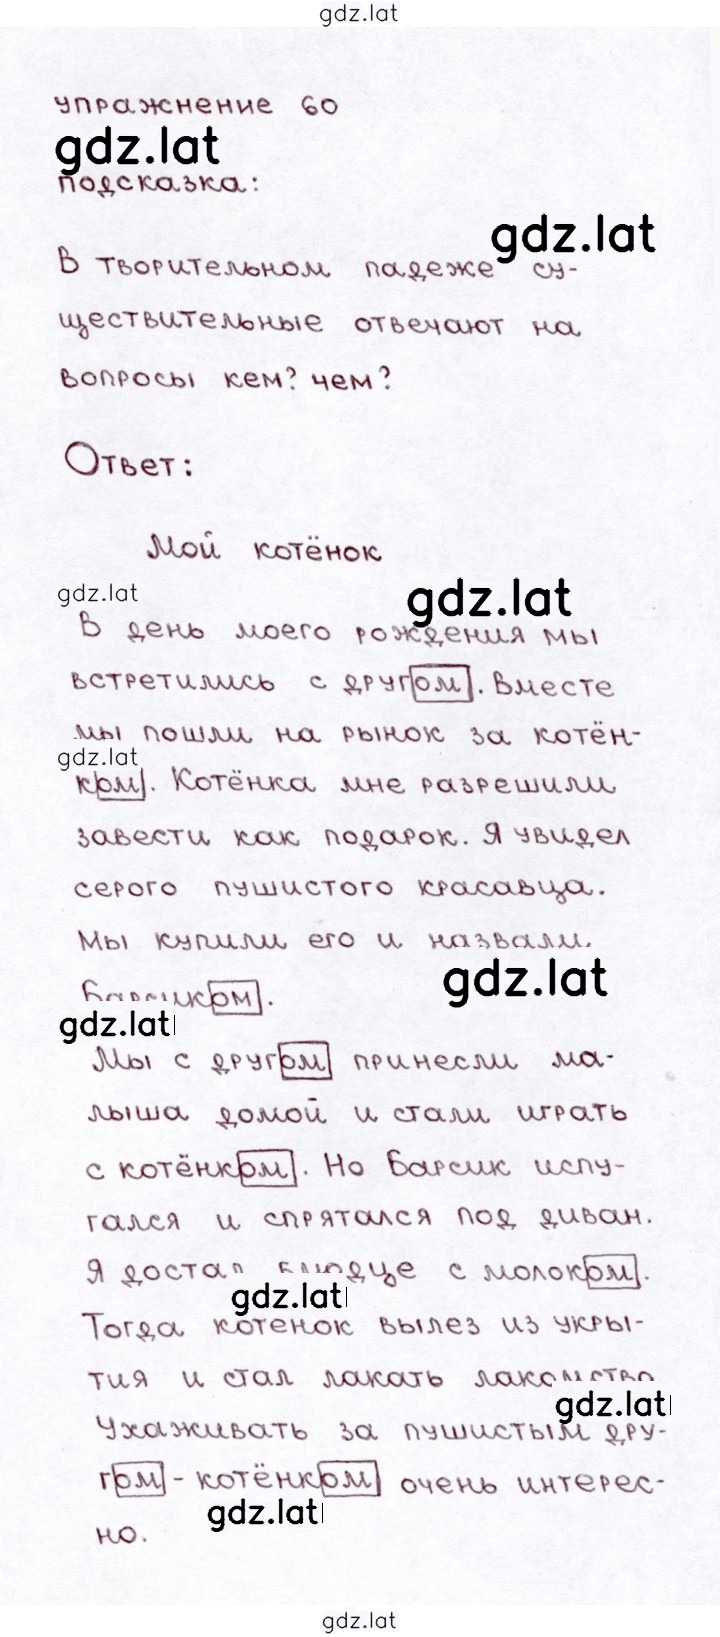 gdz.lat
упражнение 60
gdz.lat
подсказка:
gdz.lat
В творительном падеже су-
ществительные отвечают на
вопросы кем? чем?
Ответ:
Мой котёнок
gdz.lat
gdz.lat
В день моего рождения мы
встретились с другом. Вместе
мы пошли на рынок за котён-
gdz.lat
ком. Котёнка мне разрешили
завести как подарок. Я увидел
серого пушистого красавца.
Мы купили его и назвали
gdz.lat
Барсиком.
gdz.lat
Мы с другом принесли ма-
лыша домой и стали играть
с котёнком. Но Барсик испу-
гался и спрятался под диван.
Я достал блюдце с молоком.
gdz.lat
Тогда котенок вылез из укры-
тия и стал лакать лакомство
gdz.lat
Ухаживать за пушистым дру-
гом - котёнком очень интерес-
gdz.lat
но.
gdz.lat